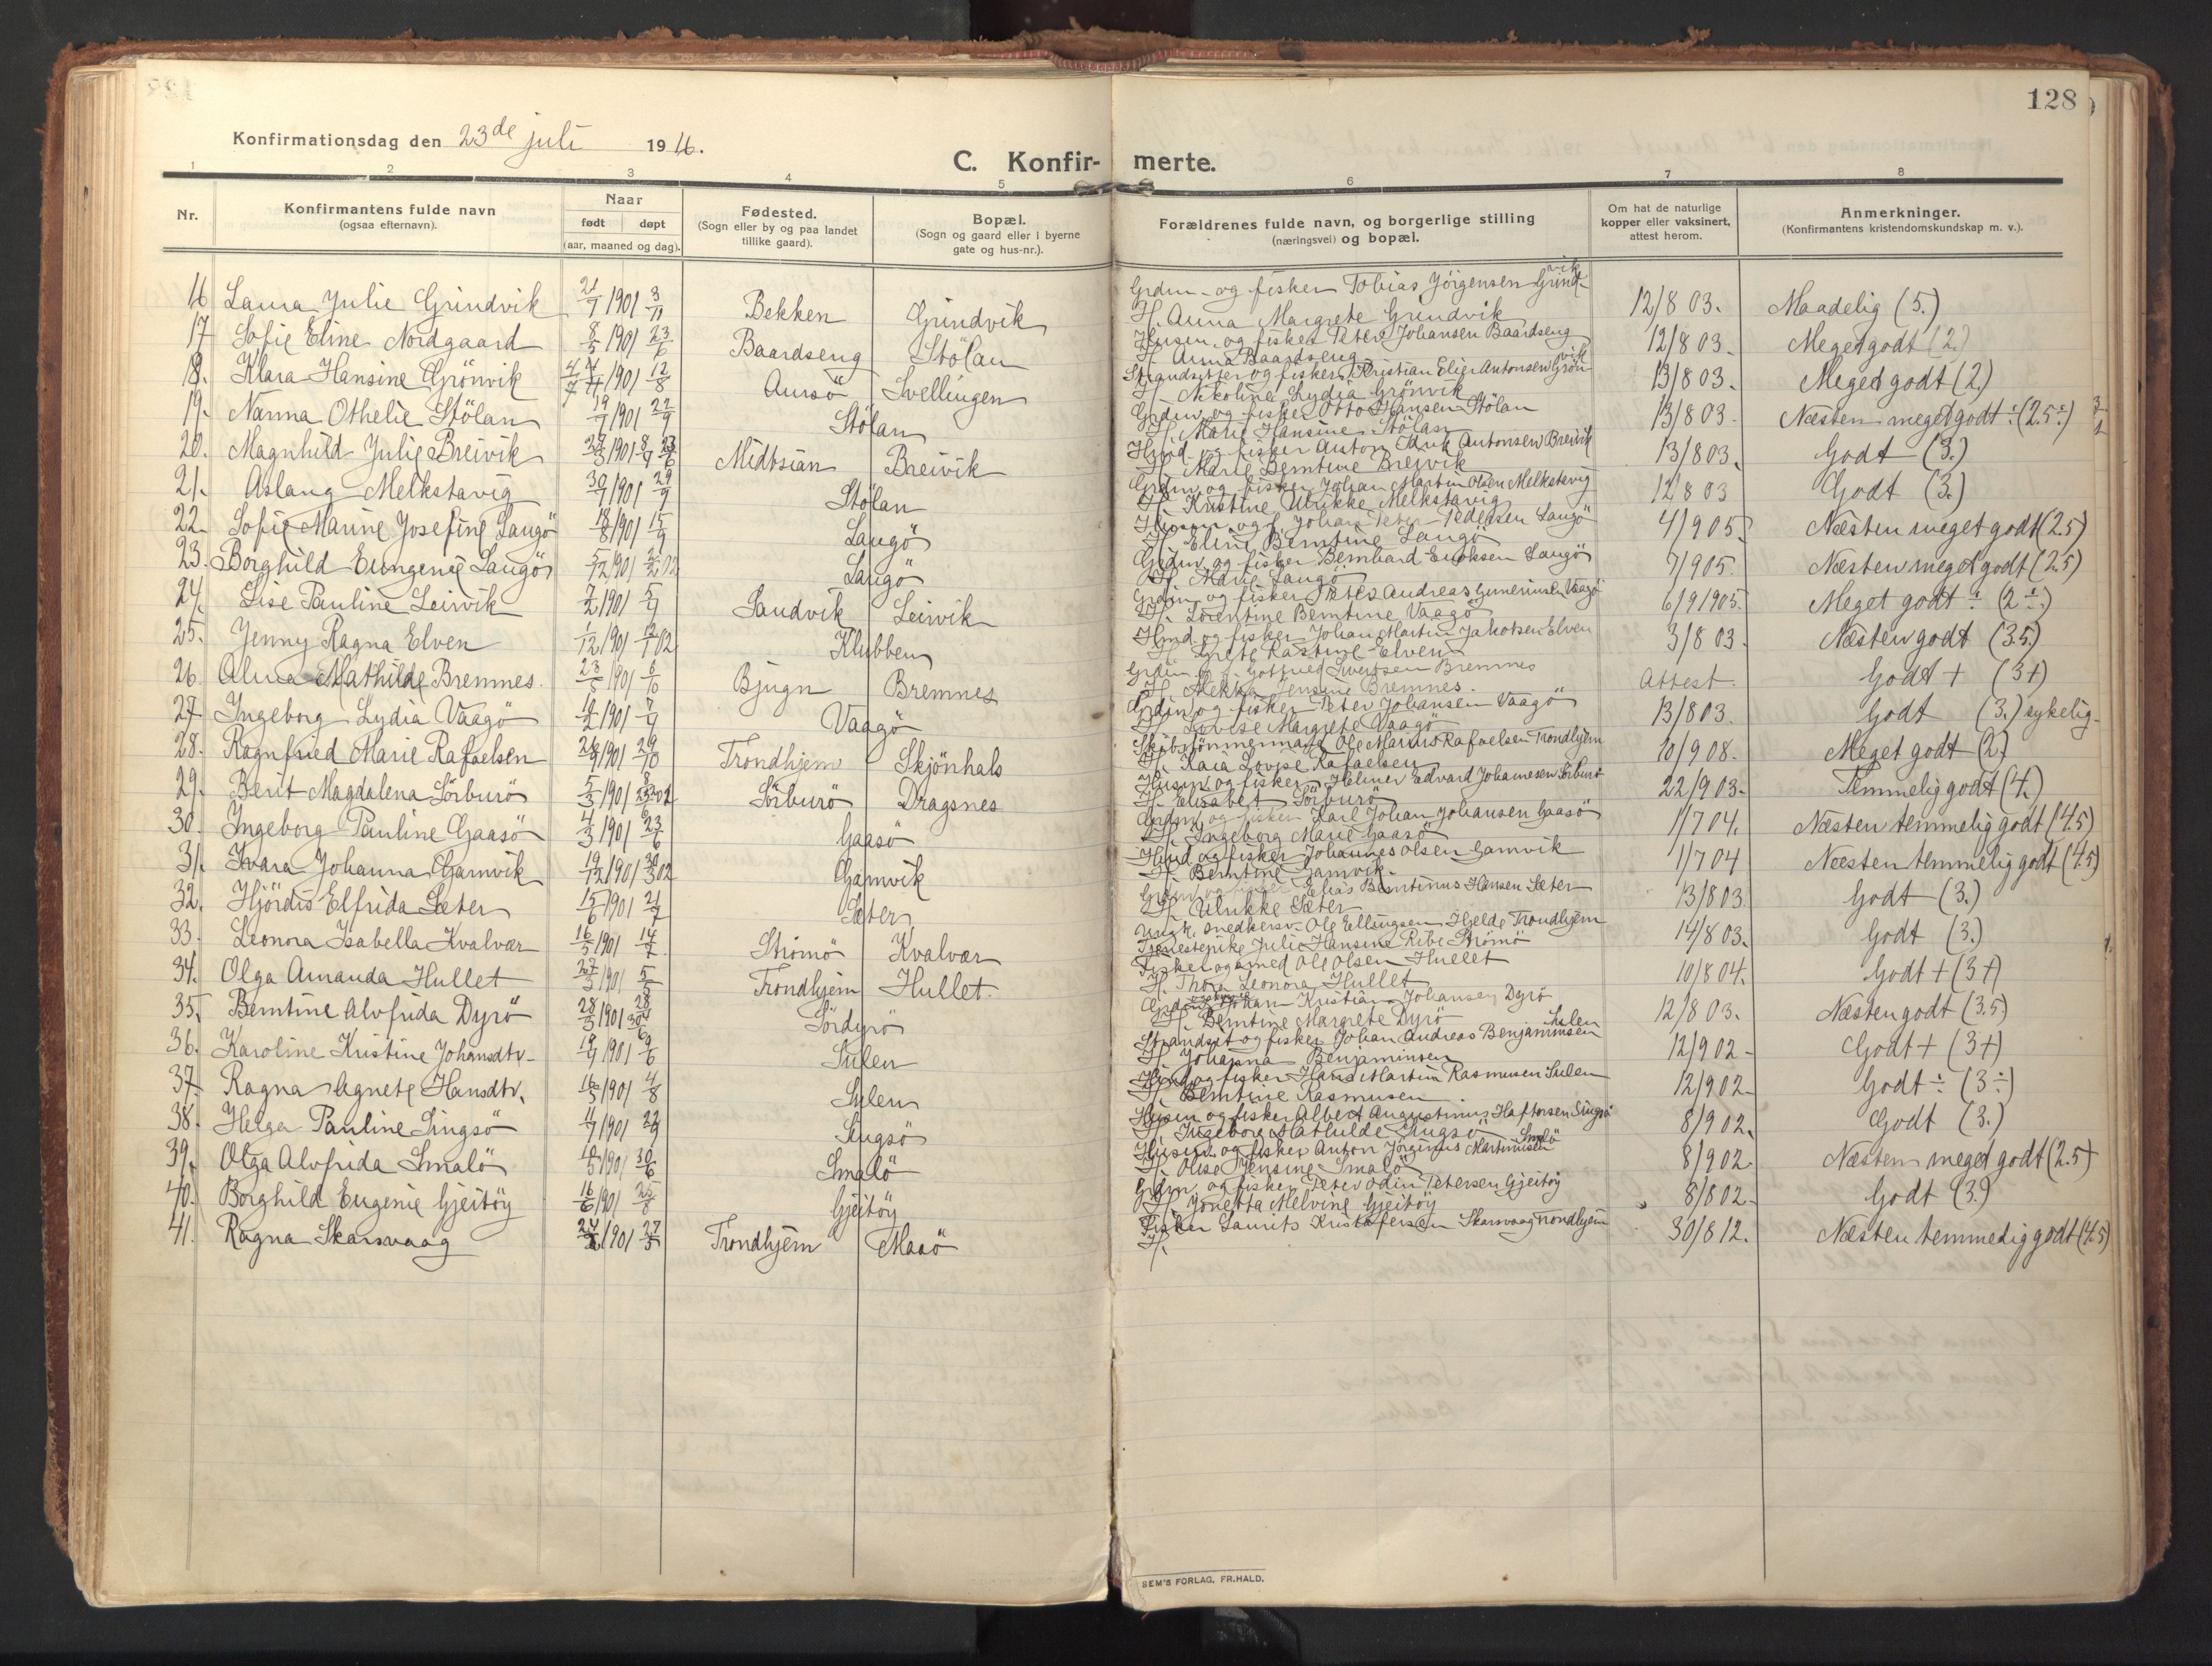 128
Konfirmationsdag den 23de juli 1916.
C. Konfir- merte.
1 2 3 4 5 6 7 8
Nr.
Konfirmantens fulde navn
(ogsaa efternavn).
Naar
født døpt
(aar, maaned og dag).
Fødested.
(Sogn eller by og paa landet
tillike gaard).
Bopæl.
(Sogn og gaard eller i byerne
gate og hus-nr.).
Forældrenes fulde navn, og borgerlige stilling
(næringsvei) og bopæl.
Om hat de naturlige
kopper eller vaksinert,
attest herom.
Anmerkninger.
(Konfirmantens kristendomskundskap m. v.).
16 Laura Julie Grindvik 21/7 1901 3/11 Bekken Grindvik Grdm. og fisker Tobias Jörgensen Grindvik 12/8 03. Maadelig (5.)
H. Anna Margrete Grindvik
17 Sofie Eline Nordgaard 8/5 1901 23/6 Baardseng Stölan Husm. og fisker Peter Johansen Baardseng 12/8 03. Meget godt (2)
H. Anna Baardseng
18. Klara Hansine Grönvik 4/7 1901 12/8 Aursö Svellingen Strandsitter og fisker Kristian Elier Antonsen Grönvik 13/8 03. Meget godt (2)
H. Nikoline Lydia Grönvik
19. Nanna Othelie Stölan 19/7 1901 22/9 Stölan Grdm. og fisker Otto Hansen Stölan 13/8 03. Næsten meget godt ÷ (2.5÷)
H. Marie Hansine Stölan
20. Magnhild Julie Breivik 1901 Midtsian Breivik og fisker Anton Antonsen Breivik 13/8 03. Godt (3.)
H. Marie Berntine Breivik
21. Aslaug Melkstavig 30/7 1901 29/9 Stölan Grdm. og fisker Johan Martin Olsen Melkstavig 12/8 03 Godt (3.)
H. Kristine Ulrikke Melkstavig
22. Sofie Marine Josefine Langö 18/8 1901 15/9 Langö Husm. og f. Johan Peter Pedersen Langö 4/9 05. Næsten meget godt (2.5)
H. Eline Berntine Langö
23. Borghild Eungenie Langö 5/12 1901 2/2 02 Langö Grdm. og fisker Bernhard Enoksen Langö 7/9 05. Næsten meget godt (2.5)
H. Marie Langö
24. Lise Pauline Leirvik 7/2 1901 5/4 Sandvik Leirvik Grdm. og fisker Peter Andreas Vaagö 6/9 1905. Meget godt ÷ (2÷)
H. Lorentine Berntine Vaagö
25. Jenny Ragna Elven 1/12 1901 12/1 02 Klubben og fisker Johan Martin Jakobsen Elven 3/8 03. Næsten godt (3.5)
H. Grete Elven
26. Alma Mathilde Bremnes. 23/8 1901 6/10 Bjugn Bremnes Grdm. og f. Gotfred Sivertsen Bremnes Attest. Godt + (3+)
H. Jensine Bremnes.
27 Ingeborg Lydia Vaagö 1901 7/4 Vaagö Grdm. og fisker Peter Johansen Vaagö 13/8 03. Godt (3.) sykelig.
H. Lovise Margrete Vaagö
28. Ragnfried Marie Rafaelsen 1901 29/10 Trondhjem Skjönhals Skibstömmermand Ole Marius Rafaelsen Trondhjem 10/9 08. Meget godt (2)
H. Kaia Lovise Rafaelsen
29. Berit Magdalena Sörburö 5/3 1901 Sörburö Dragsnes Husm. og fisker Helmer Edvard Johannesen Sörburö 22/9 03. Temmelig godt (4.)
H. Elisabet Sörburö
30. Ingeborg Pauline Gaasö 4/3 1901 23/6 Gaasö Grdm. og fisker Karl Johan Johansen Gaasö 1/7 04. Næsten temmelig godt (4.5)
H. Ingeborg Marie Gaasö
31. Ivara Johanna Gamvik 19/12 1901 30/3 02 Gamvik og fisker Johannes Olsen Gamvik 1/7 04 Næsten temmelig godt (4.5)
H. Berntine Gamvik.
32. Hjördis Elfrida Sæter 15/6 1901 21/7 Sæter Grdm. og fisker Elias Berntinus Hansen Sæter 13/8 03 Godt (3.)
H. Ulrikke Sæter
33. Leonora Isabella Kvalvær 16/5 1901 14/7 Strömö Kvalvær Ungk. snedkersv. Ole Ellingsen Hjelde Trondhjem 14/8 03. Godt (3.)
Tjenestepike Julie Hansine Ribe Strömö
34. Olga Amanda Hullet 27/3 1901 5/5 Trondhjem Hullet. Fisker og smed Ole Olsen Hullet 10/8 04. Godt + (3+)
H. Thora Leonora Hullet
35. Berntine Alvfrida Dyrö 28/3 1901 Sördyrö Johan Kristian Johansen Dyrö 12/8 03. Næsten godt (3.5)
H. Berntine Margrete Dyrö
36. Karoline Kristine Johansdtr. 19/4 1901 9/6 Sulen Strandsit. og fisker Johan Andreas Benjaminsen Sulen 12/9 02 Godt + (3+)
H. Johanna Benjaminsen
37. Ragna Agnete Hansdtr. 16/5 1901 4/8 Sulen og fisker Hans Martin Rasmusen Sulen 12/9 02 Godt ÷ (3÷)
H. Berntine Rasmusen
38. Helga Pauline Singsö 1901 22/9 Singsö Husm. og fisker Albert Augustinus Haftorsen Singsö 8/9 02. Godt (3.)
H. Ingeborg Mathilde Singsö
39. Olga Alvfrida Smalö 1901 30/6 Smalö Husm. og fisker Anton Jörginus Martinusen Smalö 8/9 02 Næsten meget godt (2.5)
H. Olise Jensine Smalö
40. Borghild Eugenie Gjeitöy 16/6 1901 25/8 Gjeitöy Grdm. og fisker Peter Odin Petersen Gjeitöy 8/8 02. Godt (3.)
H. Jonetta Melvine Gjeitöy
41. Ragna Skarsvaag 1901 27/5 Trondhjem Maaö Fisker Laurits Kristofersen Skarsvaag Trondhjem 30/8 12. Næsten temmedig godt (4.5)
H.
SEM'S FORLAG, FR.HALD.